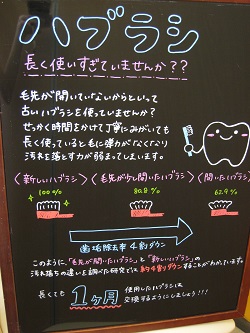 ハブラシ
長く使いすぎていませんか??
毛先が開いていないからといって
古いハブラシを使っていませんか?
せっかく時間をかけて丁寧にみがいても
長く使っていると毛に弾力がなくなり
汚れを落とす力が弱まってしまいます。
〈新しいハブラシ〉〈毛先が少し開いたハブラシ〉〈開いたハブラシ〉
100% 80.8% 62.9%
歯垢除去率 4割ダウン
このように、「毛先が開いたハブラシ」と「新しいハブラシ」の
汚れ落ちの違いを調べた研究では約4割ダウンすることがわかっています。
長くても 1ヶ月 使用したハブラシは
交換するようにしましょう!!!